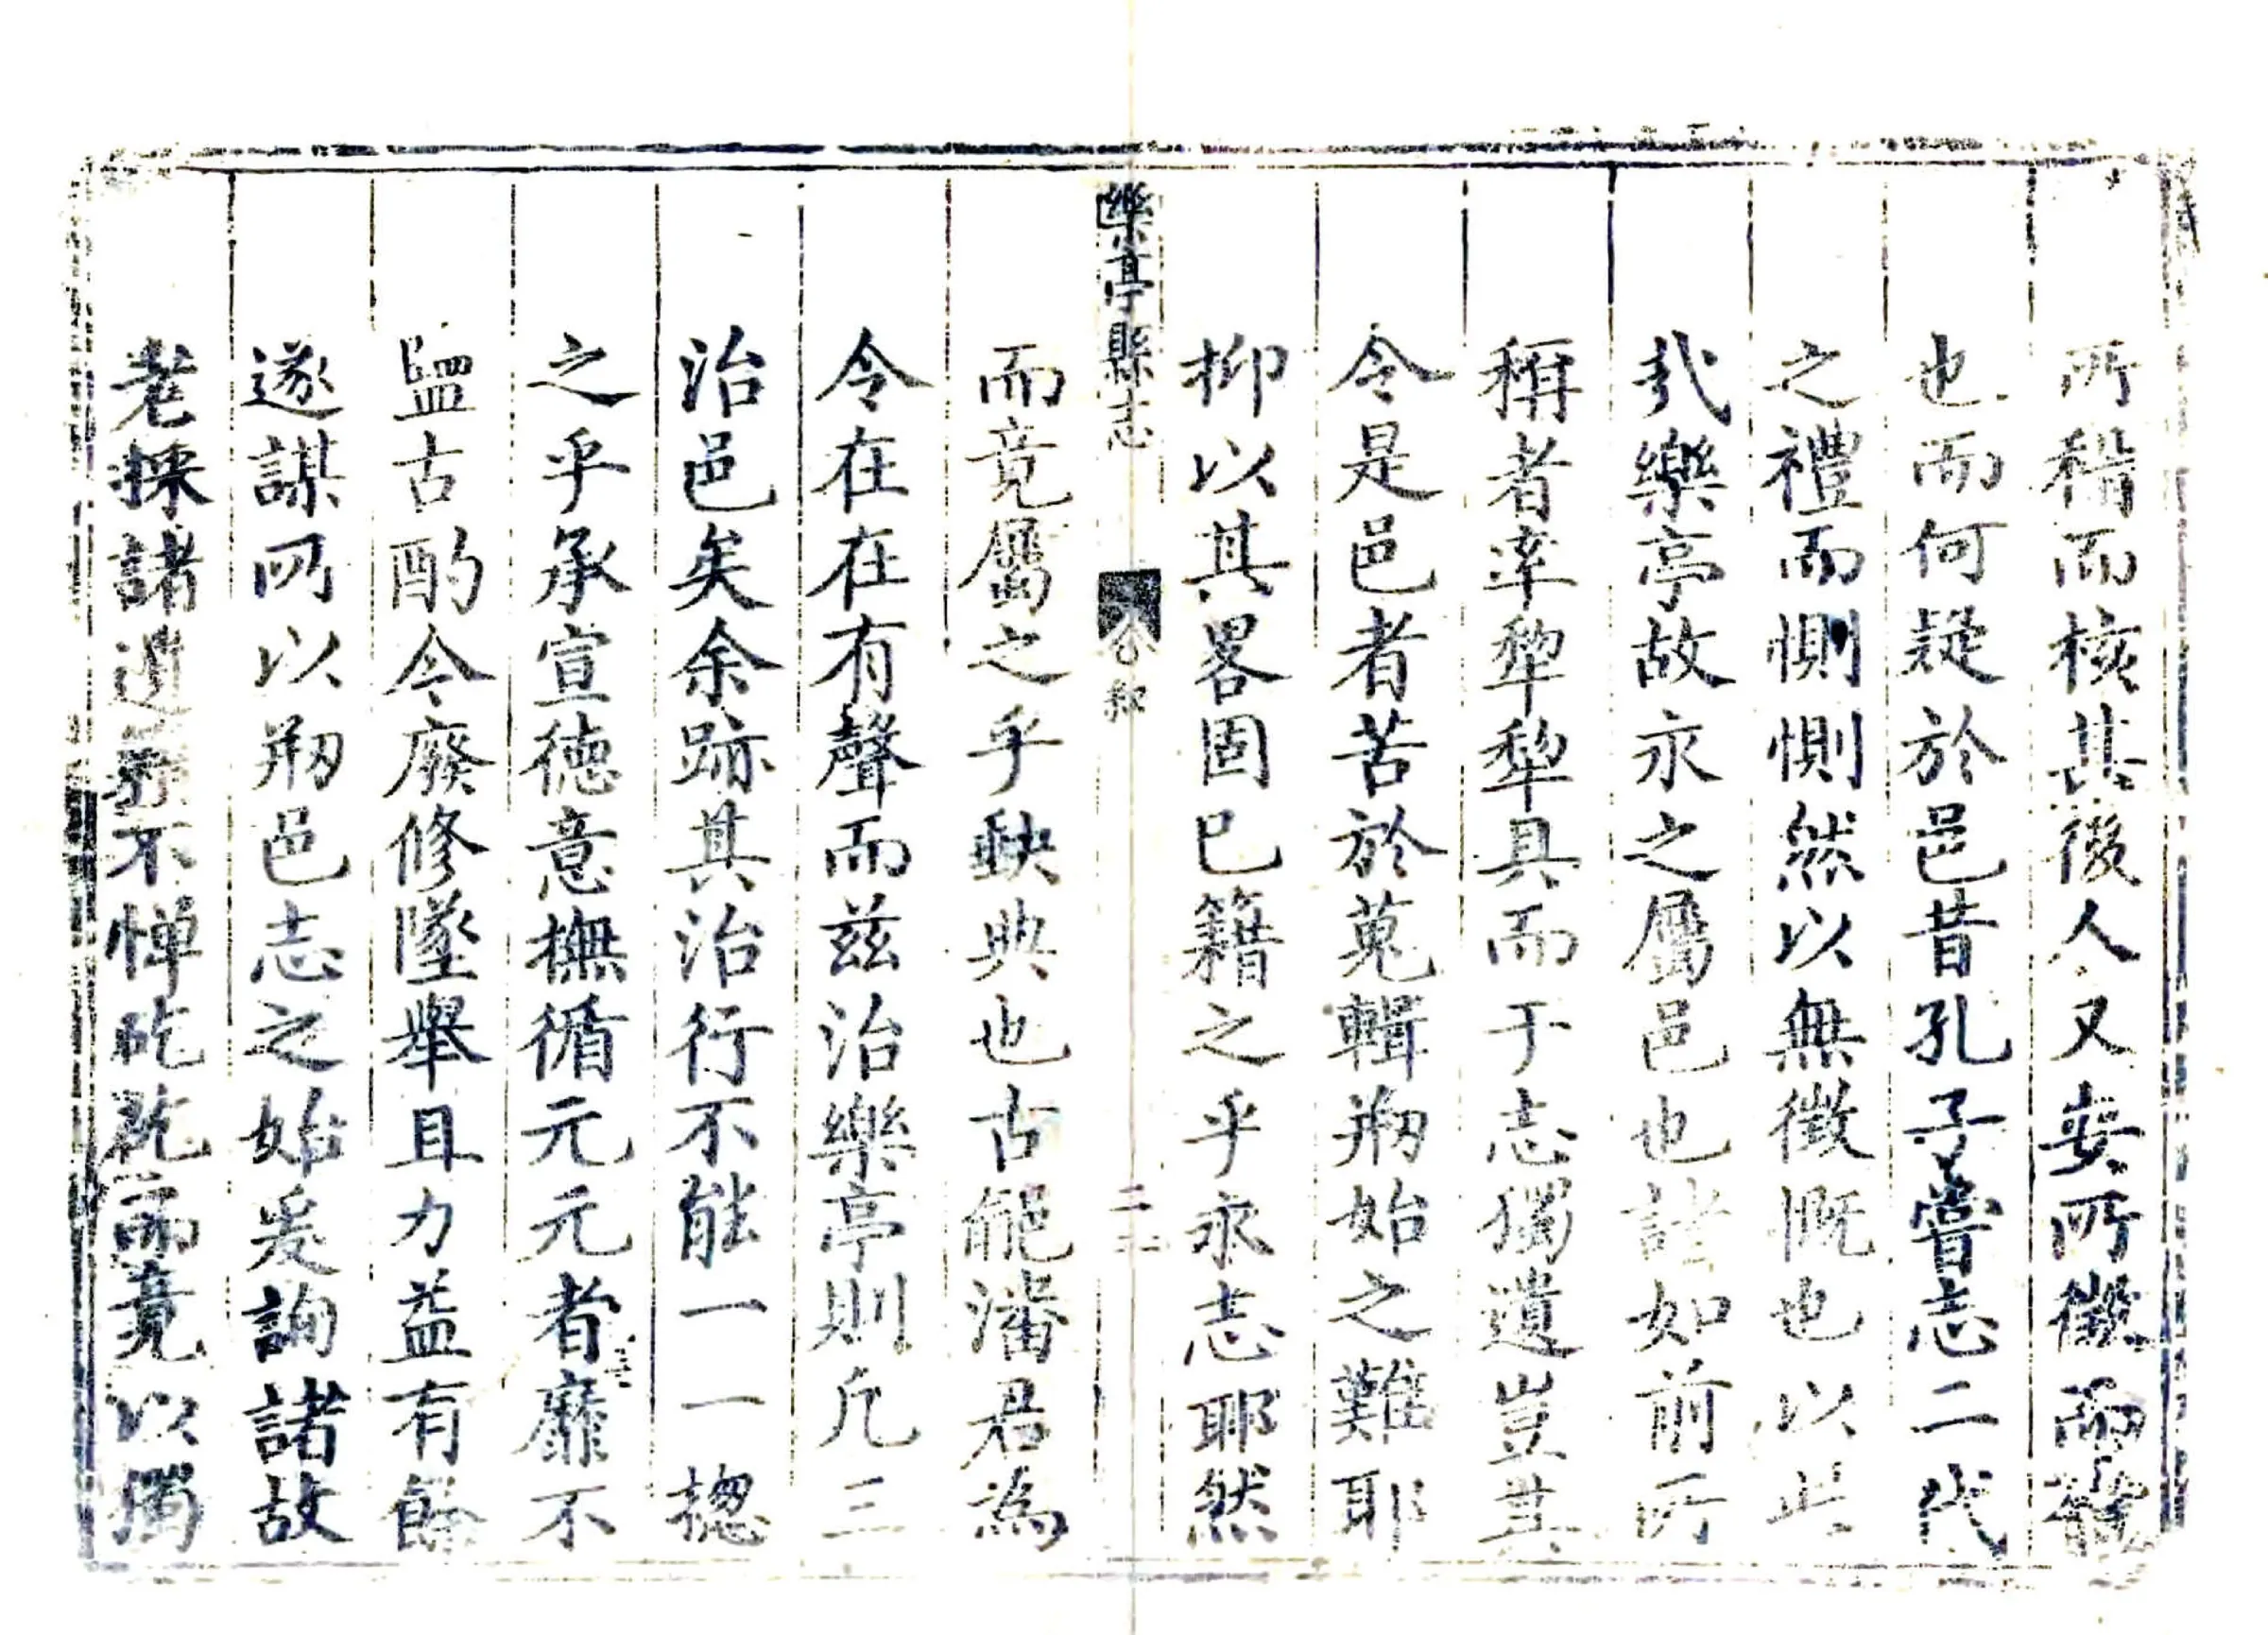 所稽而核其後人又安所徵而
也而何疑於邑昔孔子嘗志二代
之禮而惻惻然以無徵慨也以此
哉樂亭故永之屬邑也諸如前所
稱者率犂犂具而于志獨遺豈其
令是邑者苦於蒐輯剏始之難耶
抑以其畧固已籍之乎永志耶然
樂亭縣志
二
而竟屬之乎缺典也古能潘君為
令在在有聲而茲治樂亭則凢三
治邑矣余跡其治行不能一一揔
之乎承宣德意撫循元元者靡不
監古酌今廢修墜舉且力益有餘
遂謀所以剏邑志之始爰詢諸故
老採諸遺不憚矻矻而竟以獨